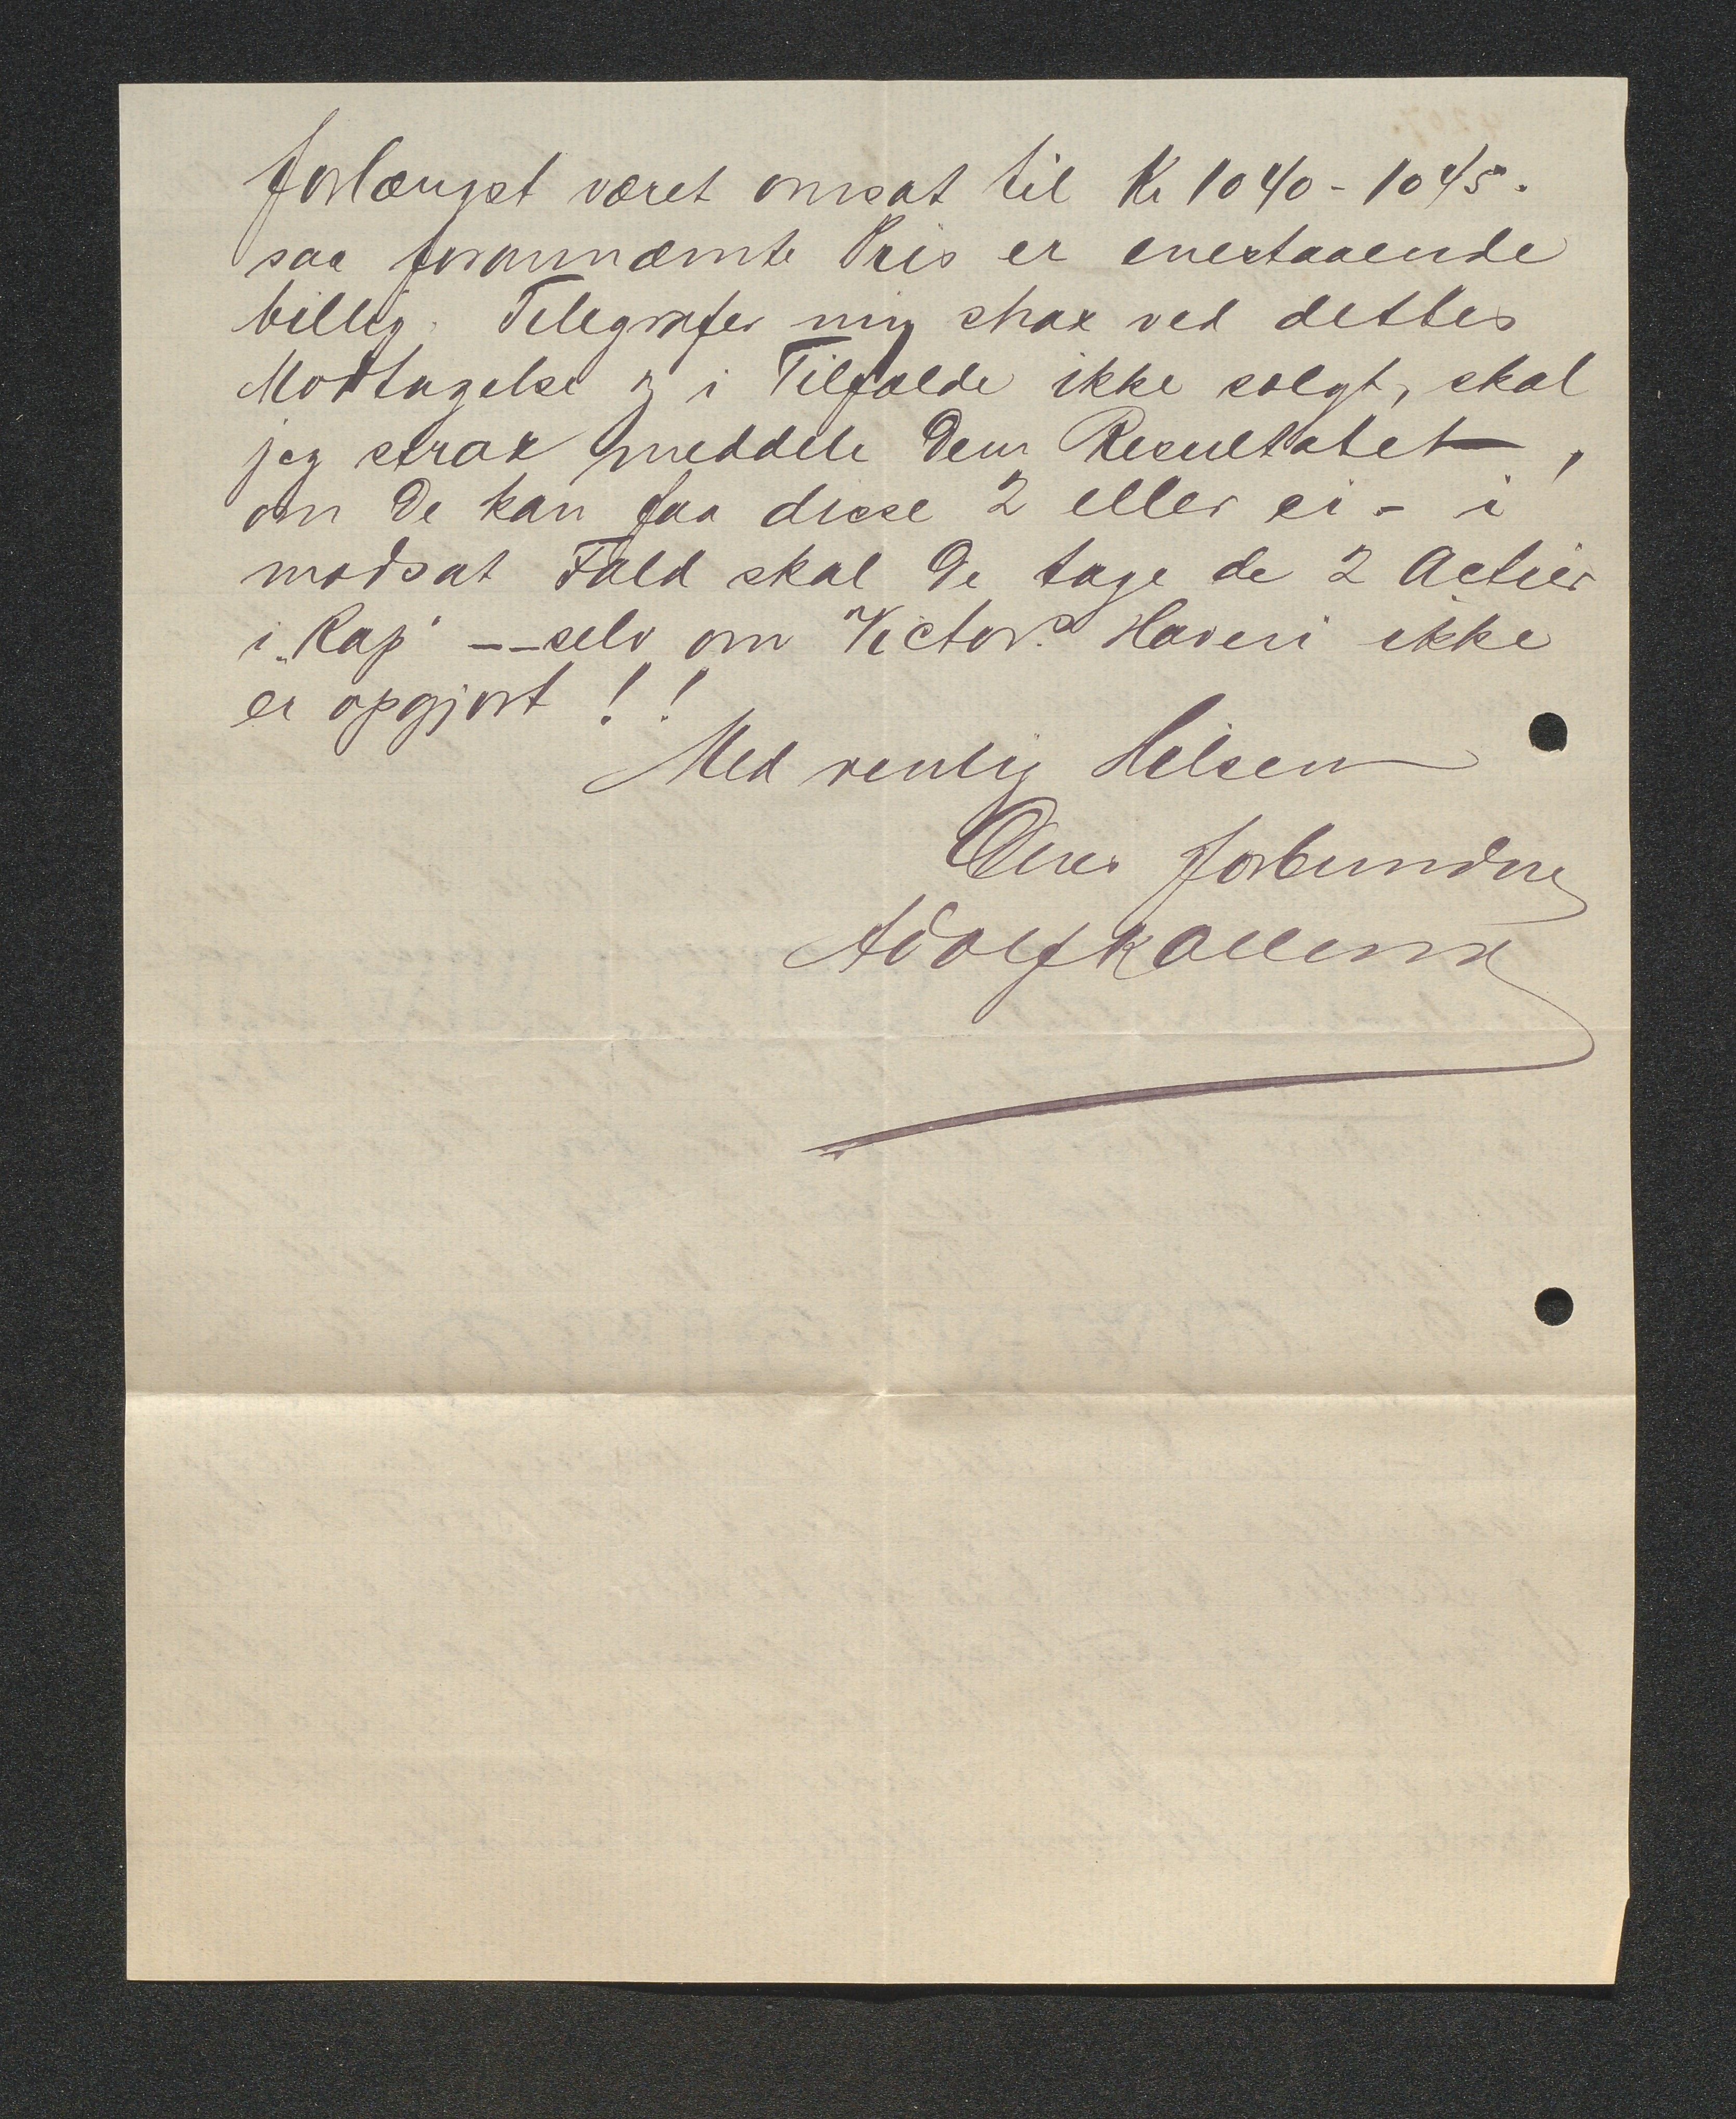 forlængst været omsat til Kr 1040 - 1045.
saa forannævnte Pris er enestaaende
billig. Telegrafer mig strax ved dettes
Modtagelse og i Tilfælde ikke solgt, skal
jeg strax meddele Dem Resultatet,
om De kan faa disse 2 eller ei - i
modsat Fald skal De tage de 2 Actier
i „Rap" -- selv om "Victors" Haveri ikke
er opgjort !!
Med venlig Hilsen
Deres forbundne
Adolf